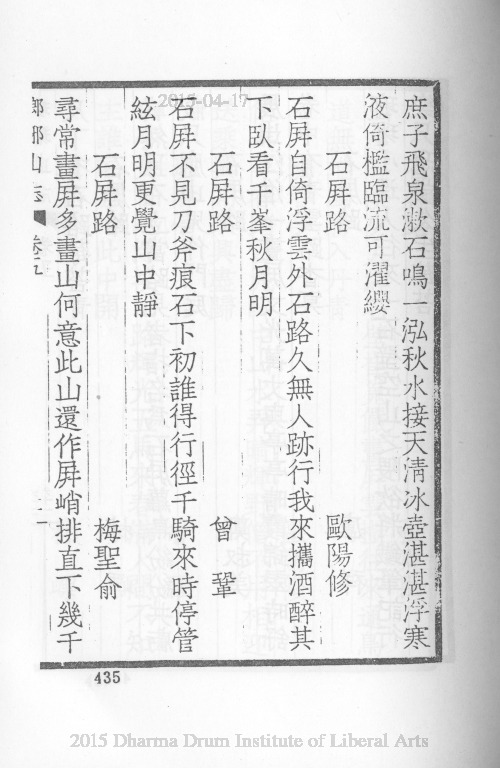 2015-04-17
庶子飛泉漱石鳴一泓秋水接天淸冰壺湛湛浮寒
液倚檻臨流可濯纓
石屛路 歐陽修
石屛自倚浮雲外石路久無人跡行我來攜酒醉其
下臥看千峯秋月明
石屛路 曾鞏
石屛不見刀斧痕石下初誰得行徑千騎來時停管
絃月明更覺山中靜
石屛路 梅聖俞
尋常畫屛多畫山何意此山還作屛峭排直下幾千
山志 卷五
435
2015 Dharma Drum Institute of Liberal Arts